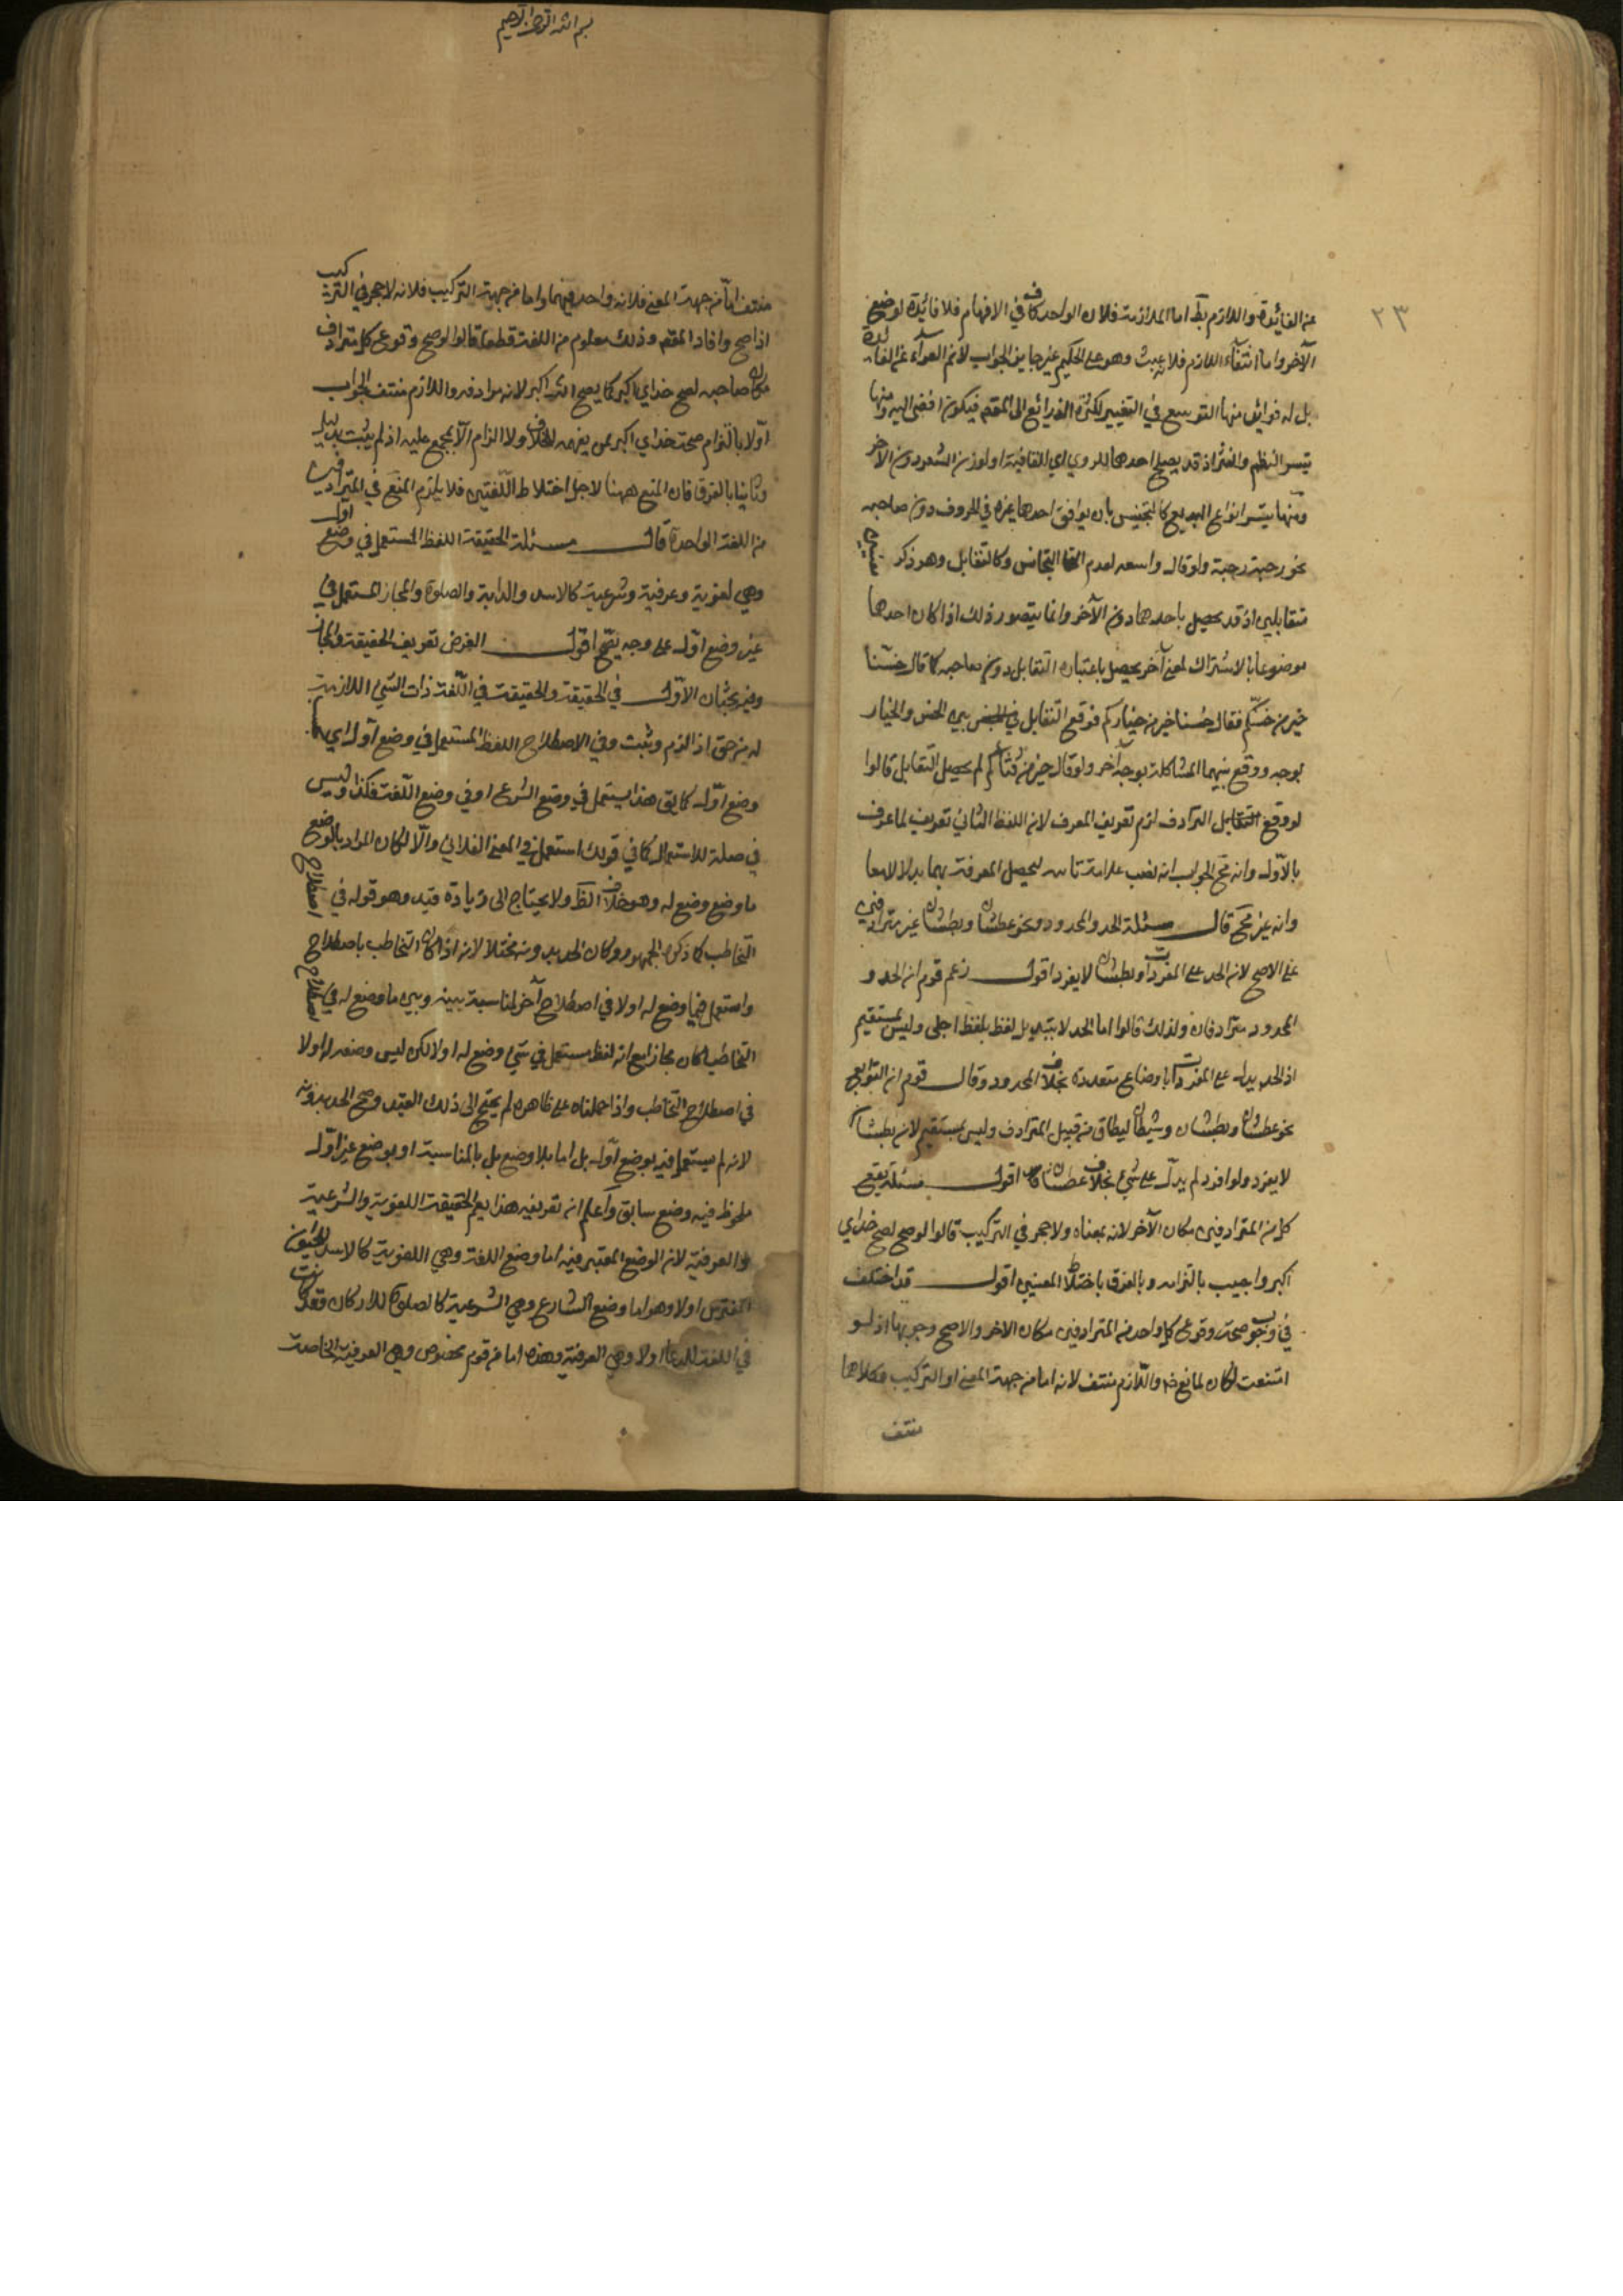 ٢٣
عن الفائدة واللازم بط اما الملازمت فلان الواحد كاف في الافهام فلا فائدة لوضع
الآخر واما انتفاء اللازم فلانه عبث وهو على الحكيم غير جايز الجواب لانم العراء عن الفائدة
بل له فوائد منها التوسع في التعبير لكثرة الذرائع الى المقصد فيكون افضى اليه ومنها
تيسر النظم والنثر اذ قد يصلح احدهما للروي اي للقافية او لوزن الشعر دون الآخر
ومنها تيسر انواع البديع كالتجنيس بان يوافق احدهما غيره في الحروف دون صاحبه
نحو رحبة رحبة ولو قال واسعه لعدم التجانس وكالتقابل وهو ذكر معنيين
متقابلين اذ قد يحصل باحدهما دون الآخر وانما يتصور ذلك اذا كان احدهما
موضوعا بالاشتراك لمعنى آخر يحصل باعتباره التقابل دون صاحبه كما قال خسنا
خير من خسكم فقال خسنا خير من خياركم فوقع التقابل بين الخس والخيار
بوجه ووقع بينهما المشاكلة بوجه آخر ولو قال خير من قثائكم لم يحصل التقابل قالوا
لو وقع الترادف لزم تعريف المعرف لان اللفظ الثاني تعريف لما عرف
بالاول وانه مح الجواب انه نصب علامة ثانيه ليحصل المعرفة بهما بدلا لا معا
وانه غير مح قال مسئلة الحد والمحدود ونحو عطشان ونطشان غير مترادفين
على الاصح لان الحد على المفردات ونطشان لا يفرد اقول زعم قوم ان الحد و
المحدود مترادفان ولذلك قالوا اما الحد لا تبديل لفظ بلفظ اجلى وليس بمستقيم
اذ الحد يدل على المفردات باوضاع متعدده بخلاف المحدود وقال قوم ان التوابع
نحو عطشان ونطشان وشيطان ليطان من قبيل المترادف وليس بمستقيم لان نطشان
لا يفرد ولو افرد لم يدل على شئ بخلاف عطشان قال اقول مسئلة يقع
كل من المترادفين مكان الآخر لانه بمعناه ولا حجر في التركيب قالوا لو صح لصح خداي
اكبر واجيب بالتزامه وبالفرق باختلاط المعنيين اقول قد اختلف
في وجوب صحت وقوع كل واحد من المترادفين مكان الاخر والاصح وجوبها اذ لو
امتنعت لكان لمانع ضر واللازم منتف لانه اما من جهة المعنى او التركيب وكلاهما
منتف
بسم الله الرحمن الرحيم
منتف اما من جهة المعنى فلانه واحد فيهما واما من جهة التركيب فلانه لا حجر في التركيب
اذا صح وافاد المقصد وذلك معلوم من اللغت قطعا قالوا لو صح وقوع كل مترادف
مكان صاحبه لصح خداي اكبر كما يصح الله اكبر لانه مرادفه واللازم منتف الجواب
اولا بالتزام صحت خداي اكبر ممن يفهمه للخلاف ولا الزام الا بمجمع عليه اذ لم يثبت بدليل
وثانيا بالفرق فان المنع ههنا لاجل اختلاط اللغتين فلا يلزم المنع في المترادفين
من اللغت الواحدة قال مسئلة الحقيقت اللفظ المستعمل في وضع اول
وهي لغوية وعرفية وشرعية كالاسد والدابة والصلوة والمجاز المستعمل في
غير وضع اول على وجه يصح اقول الغرض تعريف الحقيقت والمجاز
وفيه بحثان الاول في الحقيقت والحقيقت في اللغت ذات الشئ اللازمت
له من حق اذا لزم وثبت وفي الاصطلاح اللفظ المستعمل في وضع اول اي بحسب
وضع اول كما يق هذا يستعمل في وضع الشرع او في وضع اللغت فكذا وليس
في صلة للاستعمال كما في قولك استعمل في المعنى الفلاني والا لكان المراد بالوضع
ما وضع وضع له وهو خلاف الظ ولا يحتاج الى زيادة قيد وهو قوله في اصطلاح
التخاطب كما ذكره الجمهور وكان الحد بدونه مختلا لانه اذا كان التخاطب باصطلاح
واستعمل فيما وضع له اولا في اصطلاح آخر لمناسبة بينه وبين ما وضع له في اصطلاح
التخاطب لكان مجازا مع انه لفظ مستعمل في شئ وضع له اولا لكن ليس وضعه له اولا
في اصطلاح التخاطب واذا حملناه على ظاهره لم يحتج الى ذلك القيد وصح الحد بدونه
لانه لم يستعمل فيه بوضع اول بل اما بلا وضع بل بالمناسبة او بوضع غير اول
ملحوظ فيه وضع سابق واعلم ان تعريفه هذا يعم الحقيقت اللغوية والشرعية
والعرفية لان الوضع المعتبر فيه اما وضع اللغة وهي اللغوية كالاسد للحيوان
المفترس اولا وهو اما وضع الشارع وهي الشرعية كالصلوة للاركان وقد كانت
في اللغت للدعا اولا وهي العرفية وهذه اما من قوم مخصوص وهي العرفية الخاصة